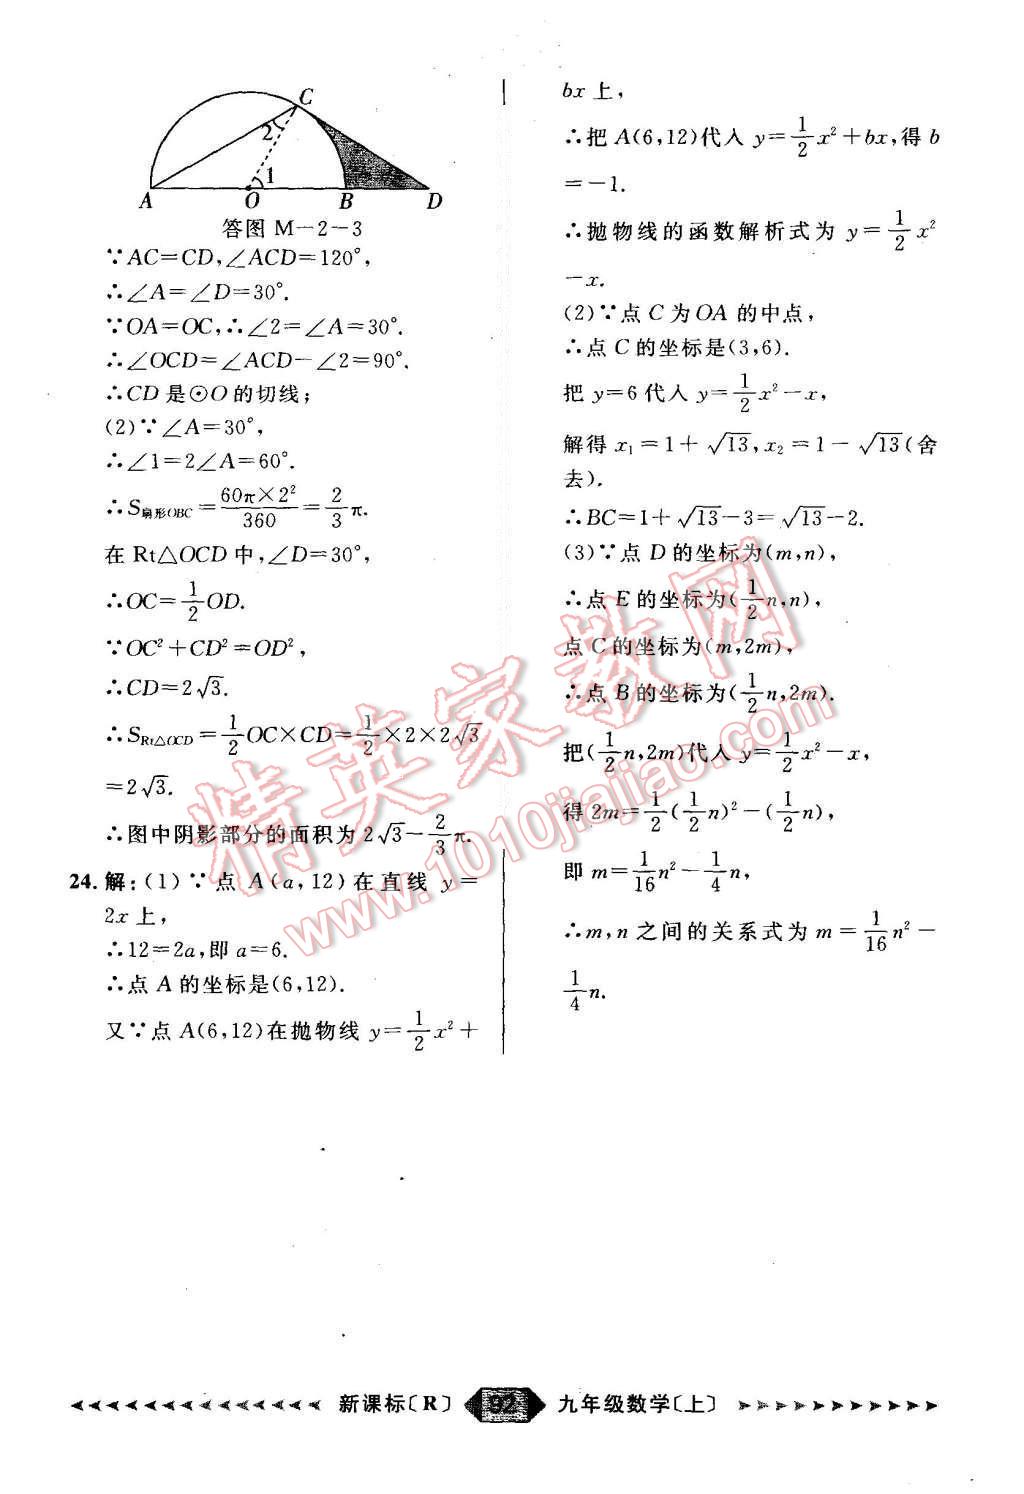 C
2
1
A
O
B
D
答图 M-2-3
∵AC=CD,∠ACD=120°,
∴∠A=∠D=30°.
∵OA=OC,∴∠2=∠A=30°.
∴∠OCD=∠ACD-∠2=90°.
∴CD是⊙O的切线;
(2)∵∠A=30°,
∴∠1=2∠A=60°.
∴S扇形OBC=60π×2²/360=2/3π.
在Rt△OCD中,∠D=30°,
∴OC=1/2OD.
∵OC²+CD²=OD²,
∴CD=2√3.
∴S_Rt△OCD=1/2OC×CD=1/2×2×2√3
=2√3.
∴图中阴影部分的面积为2√3-2/3π.
24.解:(1)∵点A(a,12)在直线 y=
2x上,
∴12=2a,即a=6.
∴点A的坐标是(6,12).
又∵点A(6,12)在抛物线 y=1/2x²+
bx上,
∴把A(6,12)代入 y=1/2x²+bx,得b
=-1.
∴抛物线的函数解析式为 y=1/2x²
-x.
(2)∵点C为OA的中点,
∴点C的坐标是(3,6).
把y=6代入 y=1/2x²-x,
解得x₁=1+√13,x₂=1-√13(舍
去).
∴BC=1+√13-3=√13-2.
(3)∵点D的坐标为(m,n),
∴点E的坐标为(1/2n,n),
点C的坐标为(m,2m),
∴点B的坐标为(1/2n,2m).
把(1/2n,2m)代入 y=1/2x²-x,
得2m=1/2(1/2n)²-(1/2n),
即m=1/16n²-1/4n,
∴m,n之间的关系式为m=1/16n²-
1/4n.
精英家教网
www.1010jiajiao.com
新课标〔R〕 92 九年级数学〔上〕